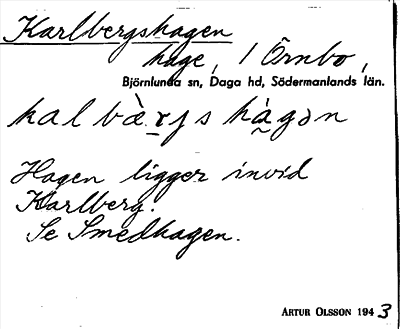 Karlbergshagen
hage, 1 Örnbo,
Björnlunda sn, Daga hd, Södermanlands län.
kalbæ̀rjs hágən
Hagen ligger invid
Karlberg.
Se Smedhagen.
ARTUR OLSSON 1943